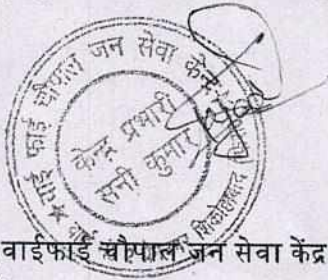 वाई फाई चौपाल जन सेवा केन्द्र
केन्द्र प्रभारी
सनी कुमार
शिकोहाबाद
वाईफाई चौपाल जन सेवा केंद्र